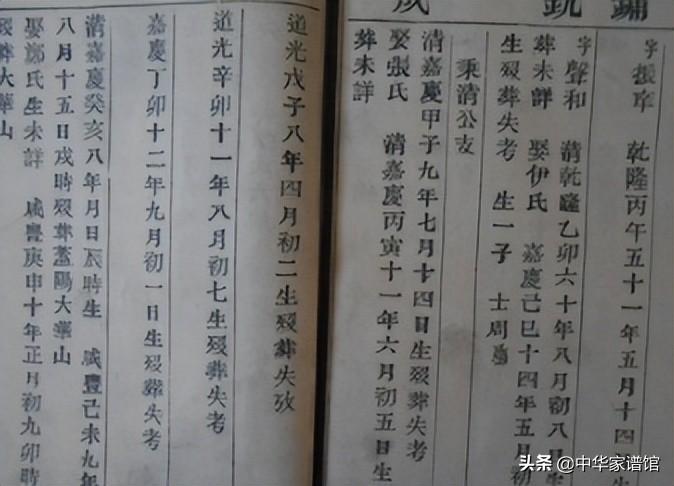 銳
字 振庠 乾隆丙午五十一年五月十四
字 聲和 清乾隆乙卯六十年八月初八日
葬未詳 娶伊氏 嘉慶己巳十四年五月
生歿葬失考 生一子 士周
秉清公支
清嘉慶甲子九年七月十四日生歿葬失考
娶張氏 清嘉慶丙寅十一年六月初五日生
葬未詳
道光戊子八年四月初二生歿葬失攷
道光辛卯十一年八月初七生歿葬失考
嘉慶丁卯十二年九月初一日生歿葬失考
清嘉慶癸亥八年月日辰時生 咸豐己未九年
八月十五日戌時歿葬蓋陽大華山
娶鄭氏生未詳 咸豐庚申十年正月初九卯時
歿葬大華山
头条 @中华家谱馆